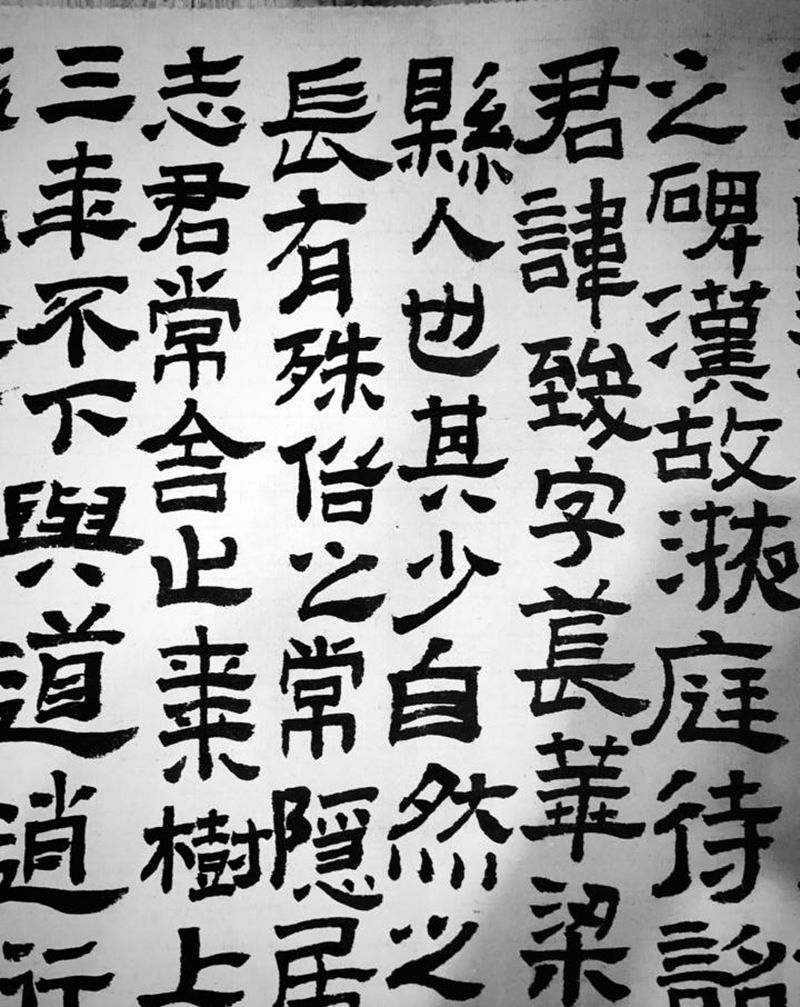 之碑漢故掖庭待詔
君諱致字萇華梁
縣人也其少自然之
長有殊俗之常隱居
志君常舍止棗樹上
三年不下與道逍行